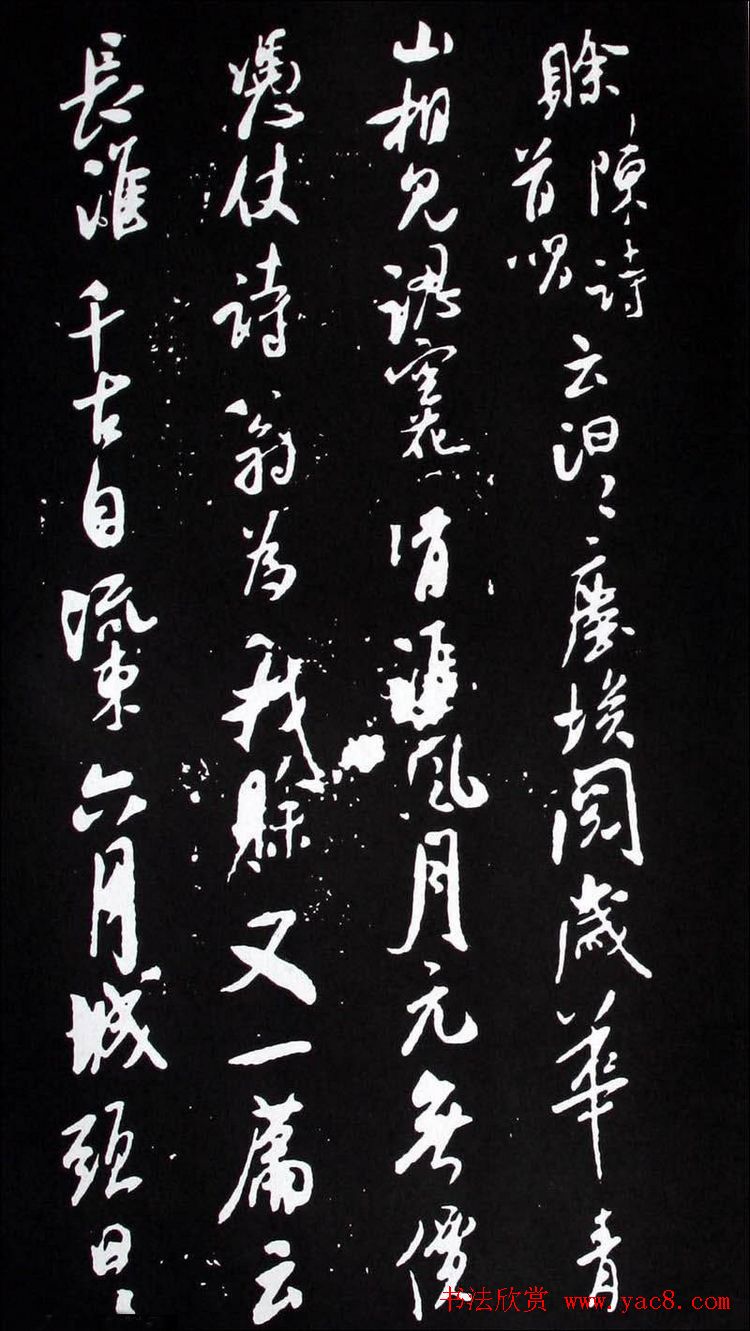 賒陳詩首唱云汩〻塵埃閱歲華青
山相見語空花風月元無價
憑仗詩翁為我賒又一篇云
長淮千古自流東六月城頭日〻
书法欣赏 www.yac8.com